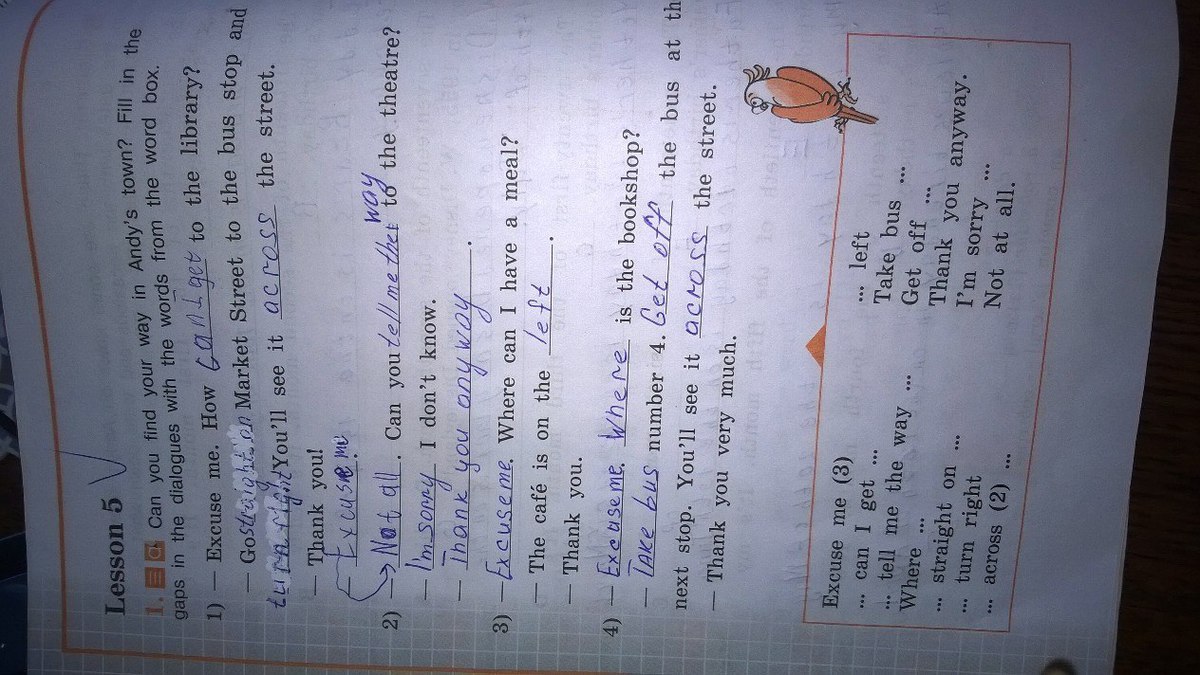 Lesson 5
1. a Can you find your way in Andy's town? Fill in the
gaps in the dialogues with the words from the word box.
1) — Excuse me. How can I get to the library?
— Go straight on Market Street to the bus stop and
turn right You'll see it across the street.
— Thank you!
— Excuse me.
2) — Not all. Can you tell me the way to the theatre?
— Im sorry I don't know.
— Thank you anyway.
3) — Excuse me. Where can I have a meal?
— The café is on the left.
— Thank you.
4) — Excuse me. Where is the bookshop?
— Take bus number 4. Get off the bus at th
next stop. You'll see it across the street.
— Thank you very much.
Excuse me (3)
... can I get ...
... tell me the way ...
Where ...
... straight on ...
... turn right
... across (2) ...
... left
Take bus ...
Get off ...
Thank you anyway.
I'm sorry ...
Not at all.